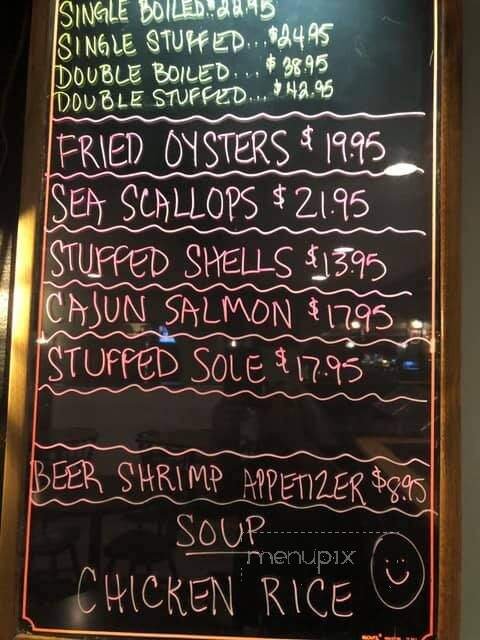 SINGLE BOILED..$22.95
SINGLE STUFFED...$24.95
DOUBLE BOILED...$38.95
DOUBLE STUFFED...$42.95
FRIED OYSTERS $19.95
SEA SCALLOPS $21.95
STUFFED SHELLS $13.95
CAJUN SALMON $17.95
STUFFED SOLE $17.95
BEER SHRIMP APPETIZER $8.95
SOUP
menupix
CHICKEN RICE